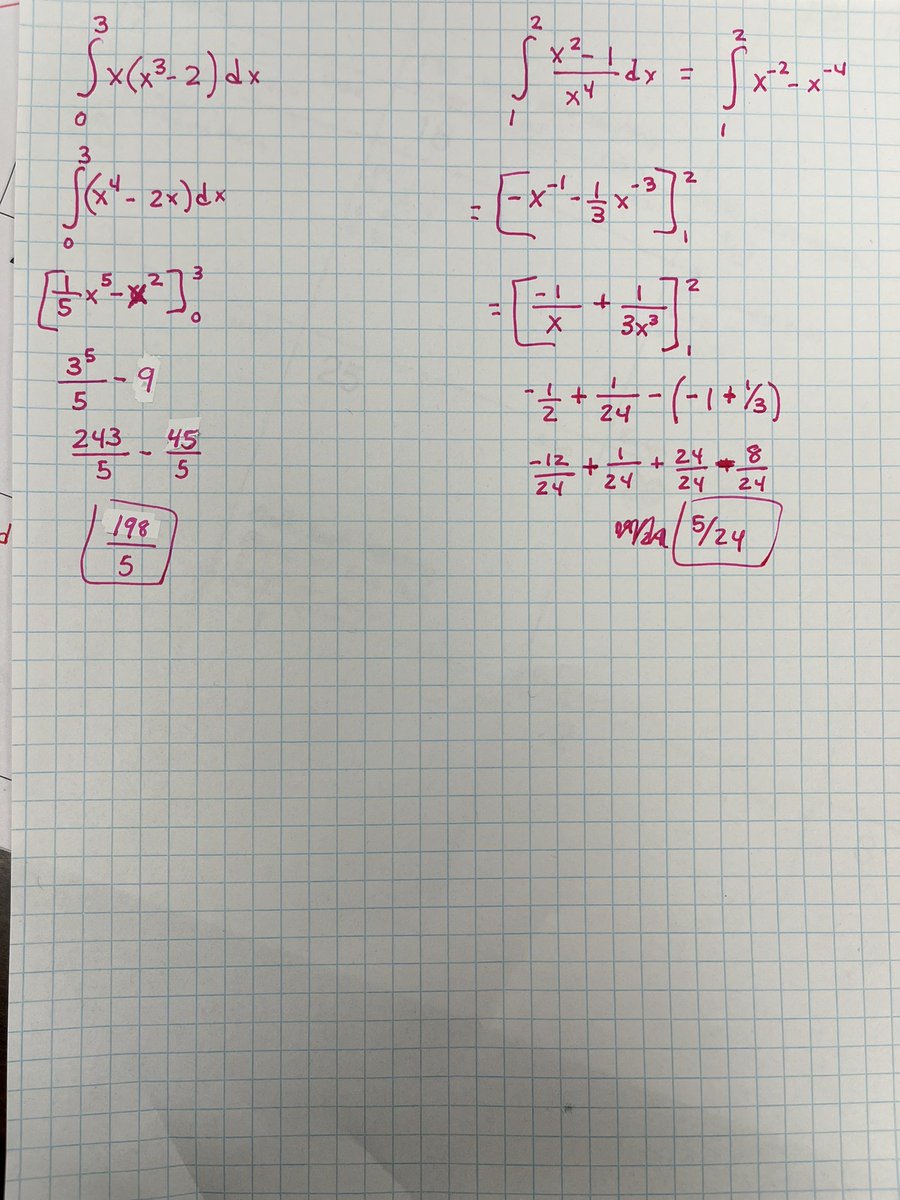 ∫₀³ x(x³-2)dx
∫₀³ (x⁴ - 2x)dx
[1/5 x⁵ - x²]₀³
3⁵/5 - 9
243/5 - 45/5
198/5
∫₁² (x²-1)/x⁴ dx = ∫₁² x⁻² - x⁻⁴
= [-x⁻¹ - 1/3 x⁻³]₁²
= [-1/x + 1/3x³]₁²
-1/2 + 1/24 - (-1 + 1/3)
-12/24 + 1/24 + 24/24 - 8/24
5/24